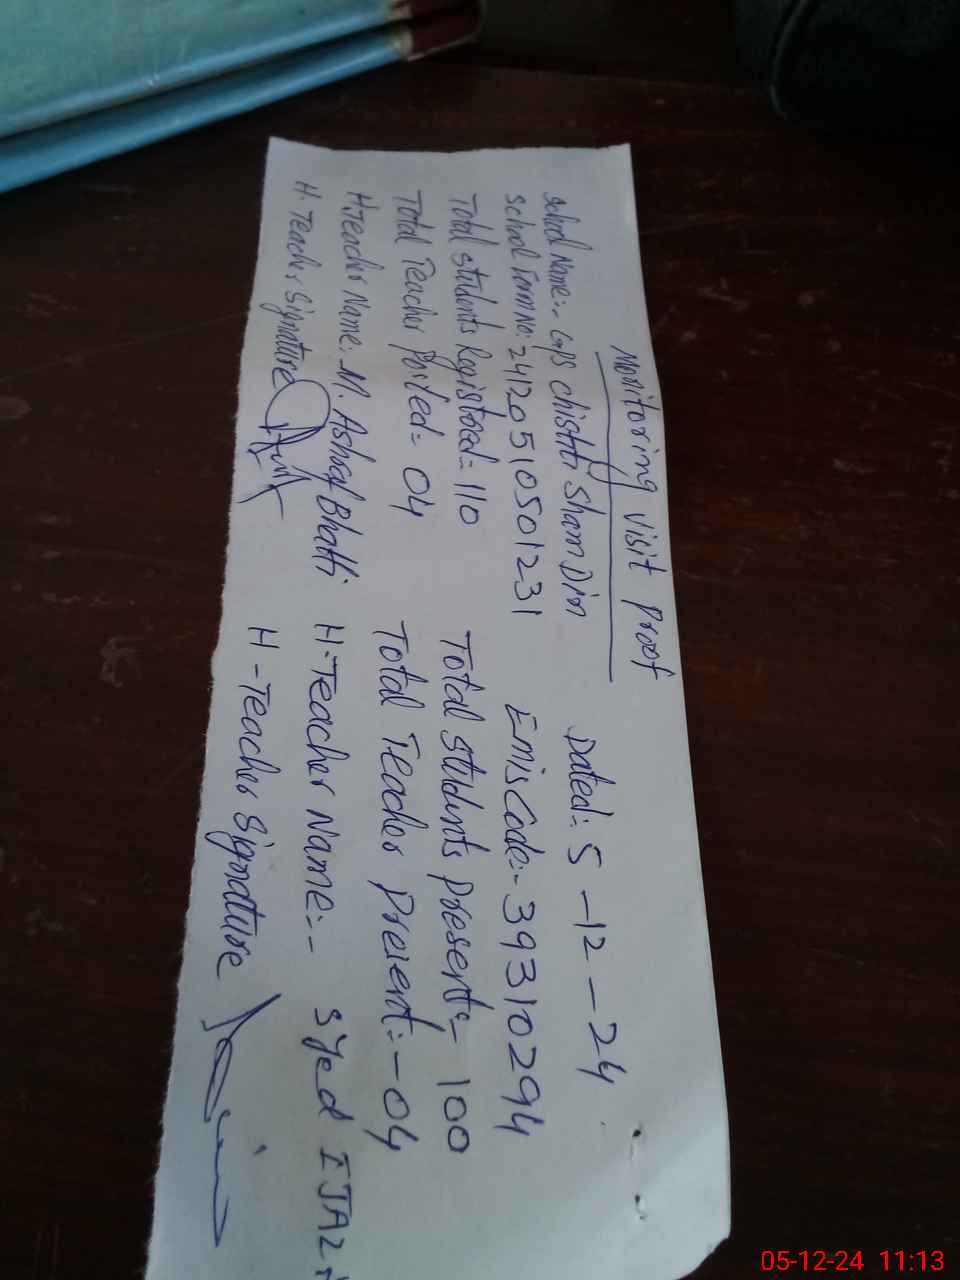 Monitoring visit proof
School Name:- GPS chishti Sham Din Dated:- 5-12-24
School Farm No: 24120510501231 Emis Code:- 39310294
Total students Registered= 110 Total students present:- 100
Total Teacher Posted= 04 Total Teacher Present:- 04
H.Teacher Name:- M. Ashraf Bhatti H-Teacher Name:- Syed IJAZ
H. Teacher Signature H-Teacher Signature
05-12-24 11:13